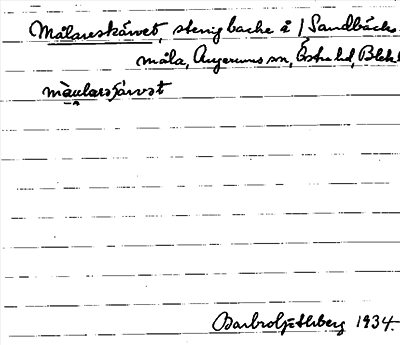 Målareskärvet, stenig backe å / Sandbäcks-
måla, Augerums sn, Östra hd, Blek.
màu̯larsʃärvət
Barbro Ahlberg 1934.